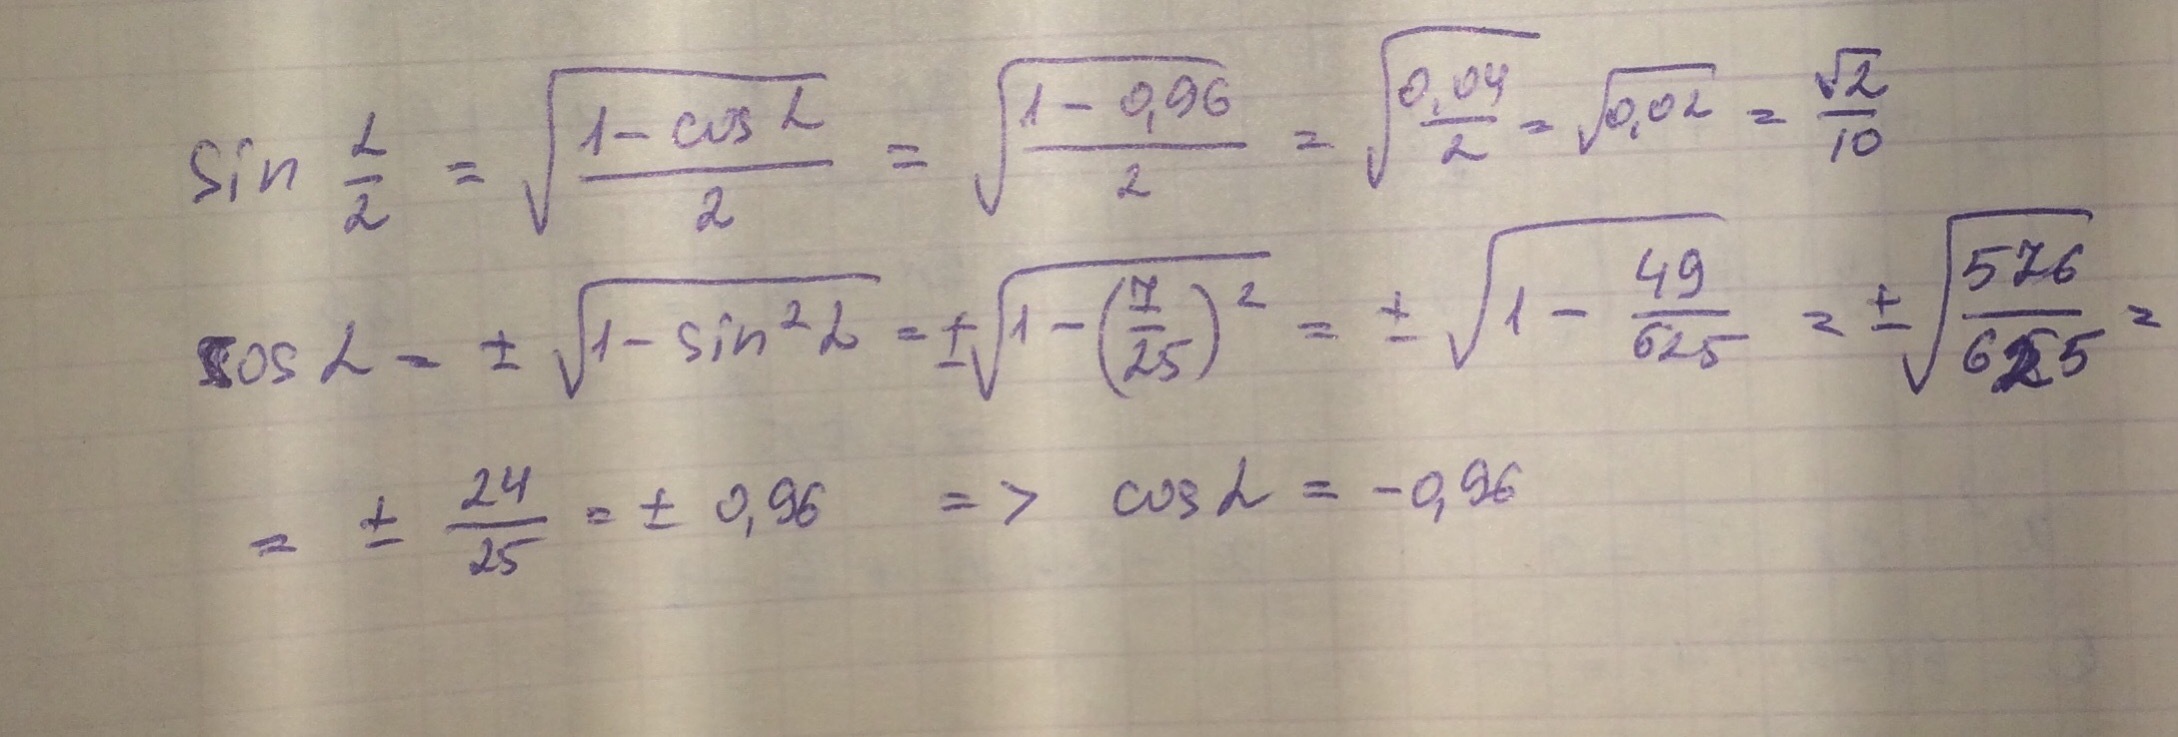 sin α/2 = √((1 - cos α)/2) = √((1 - 0,96)/2) = √(0,04/2) = √0,02 = √2/10
cos α = ± √(1 - sin² α) = ± √(1 - (7/25)²) = ± √(1 - 49/625) = ± √(576/625) =
= ± 24/25 = ± 0,96 => cos α = -0,96